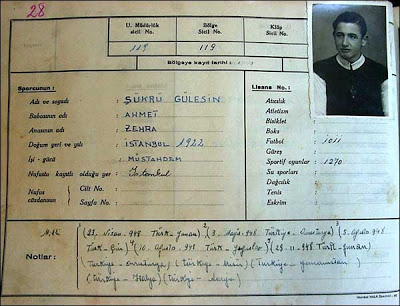 28
U. Müdürlük
Sicil No.
Bölge
Sicil No.
Klüp
Sicil No.
119
119
Bölgeye kayıt tarihi
Sporcunun :
Adı ve soyadı : ŞÜKRÜ GÜLESİN
Babasının adı : AHMET
Anasının adı : ZEHRA
Doğum yeri ve yılı : İSTANBUL 1922
İşi - gücü : MÜSTAHDEM
Nufusta kayıtlı olduğu yer : İstanbul
Nufus
cüzdanının
Cilt No. :
Sayfa No. :
Lisans No. :
Atıcılık :
Atletizm :
Bisiklet :
Boks :
Futbol : 1011
Güreş :
Sportif oyunlar : 1270
Su sporları :
Dağcılık :
Tenis :
Eskrim :
Notlar :
(23. Nisan. 948 Türk - Yunan) (3. Mayıs - 948 Türkiye - Avusturya) (5. Ağusto. 948
Türk - Çin) (10. Ağusto. 948 Türk - Yugoslav) (28 - 11 - 948 Türk - Yunan)
(Türkiye - Avusturya) (Türkiye - Mısır) (Türkiye - Yunanistan)
(Türkiye - İtalya) (Türkiye -